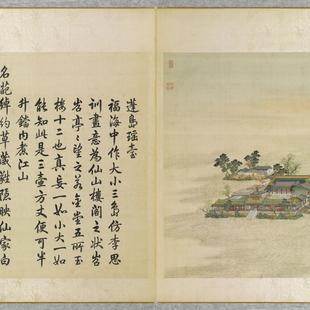 蓬島瑤臺
福海中作大小三島仿李思
訓畫意為仙山樓閣之狀岧
岧亭〻望之若金堂五所玉
樓十二也真妄一如小大一如
能知此是三壺方丈便可半
升鐺內煮江山
名葩綽約草葳蕤隱映仙家白